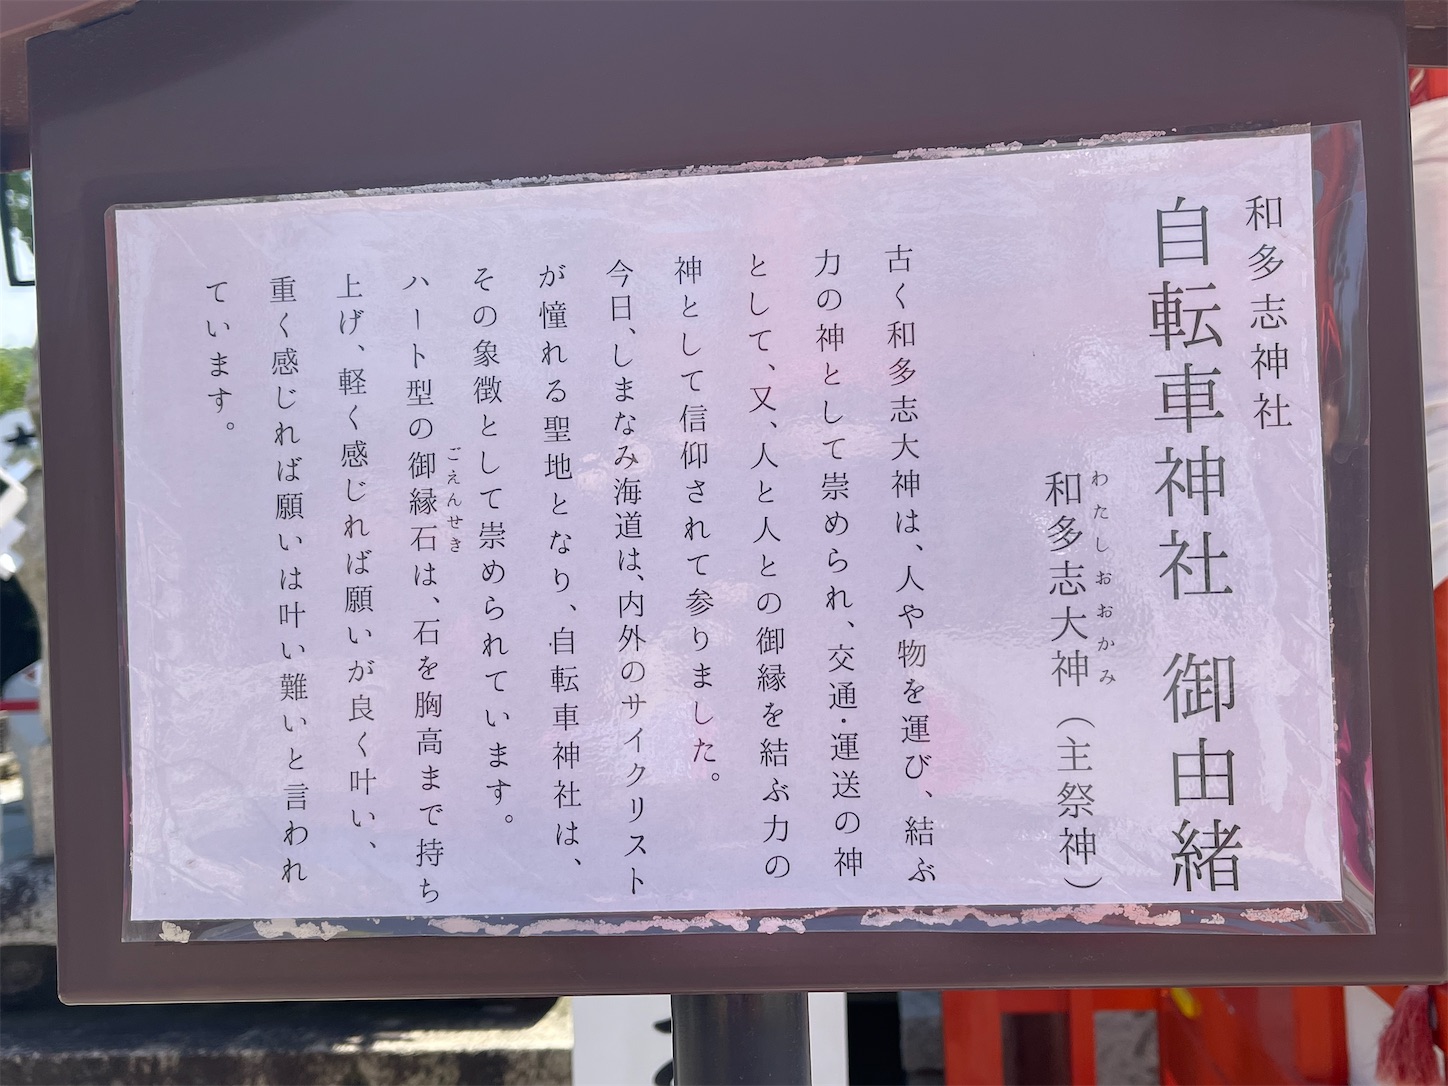 和多志神社
自転車神社 御由緒
わたしおおかみ
和多志大神（主祭神）
古く和多志大神は、人や物を運び、結ぶ
力の神として崇められ、交通・運送の神
として、又、人と人との御縁を結ぶ力の
神として信仰されて参りました。
今日、しまなみ海道は、内外のサイクリスト
が憧れる聖地となり、自転車神社は、
その象徴として崇められています。
ごえんせき
ハート型の御縁石は、石を胸高まで持ち
上げ、軽く感じれば願いが良く叶い、
重く感じれば願いは叶い難いと言われ
ています。